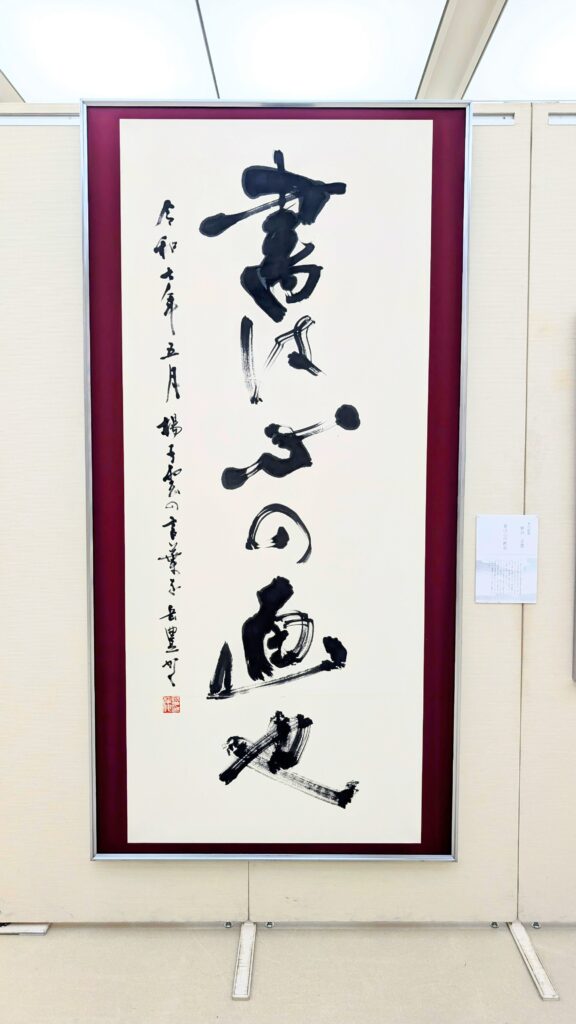 書は心の画也
令和七年五月 楊子雲の言葉を 岳豊かく